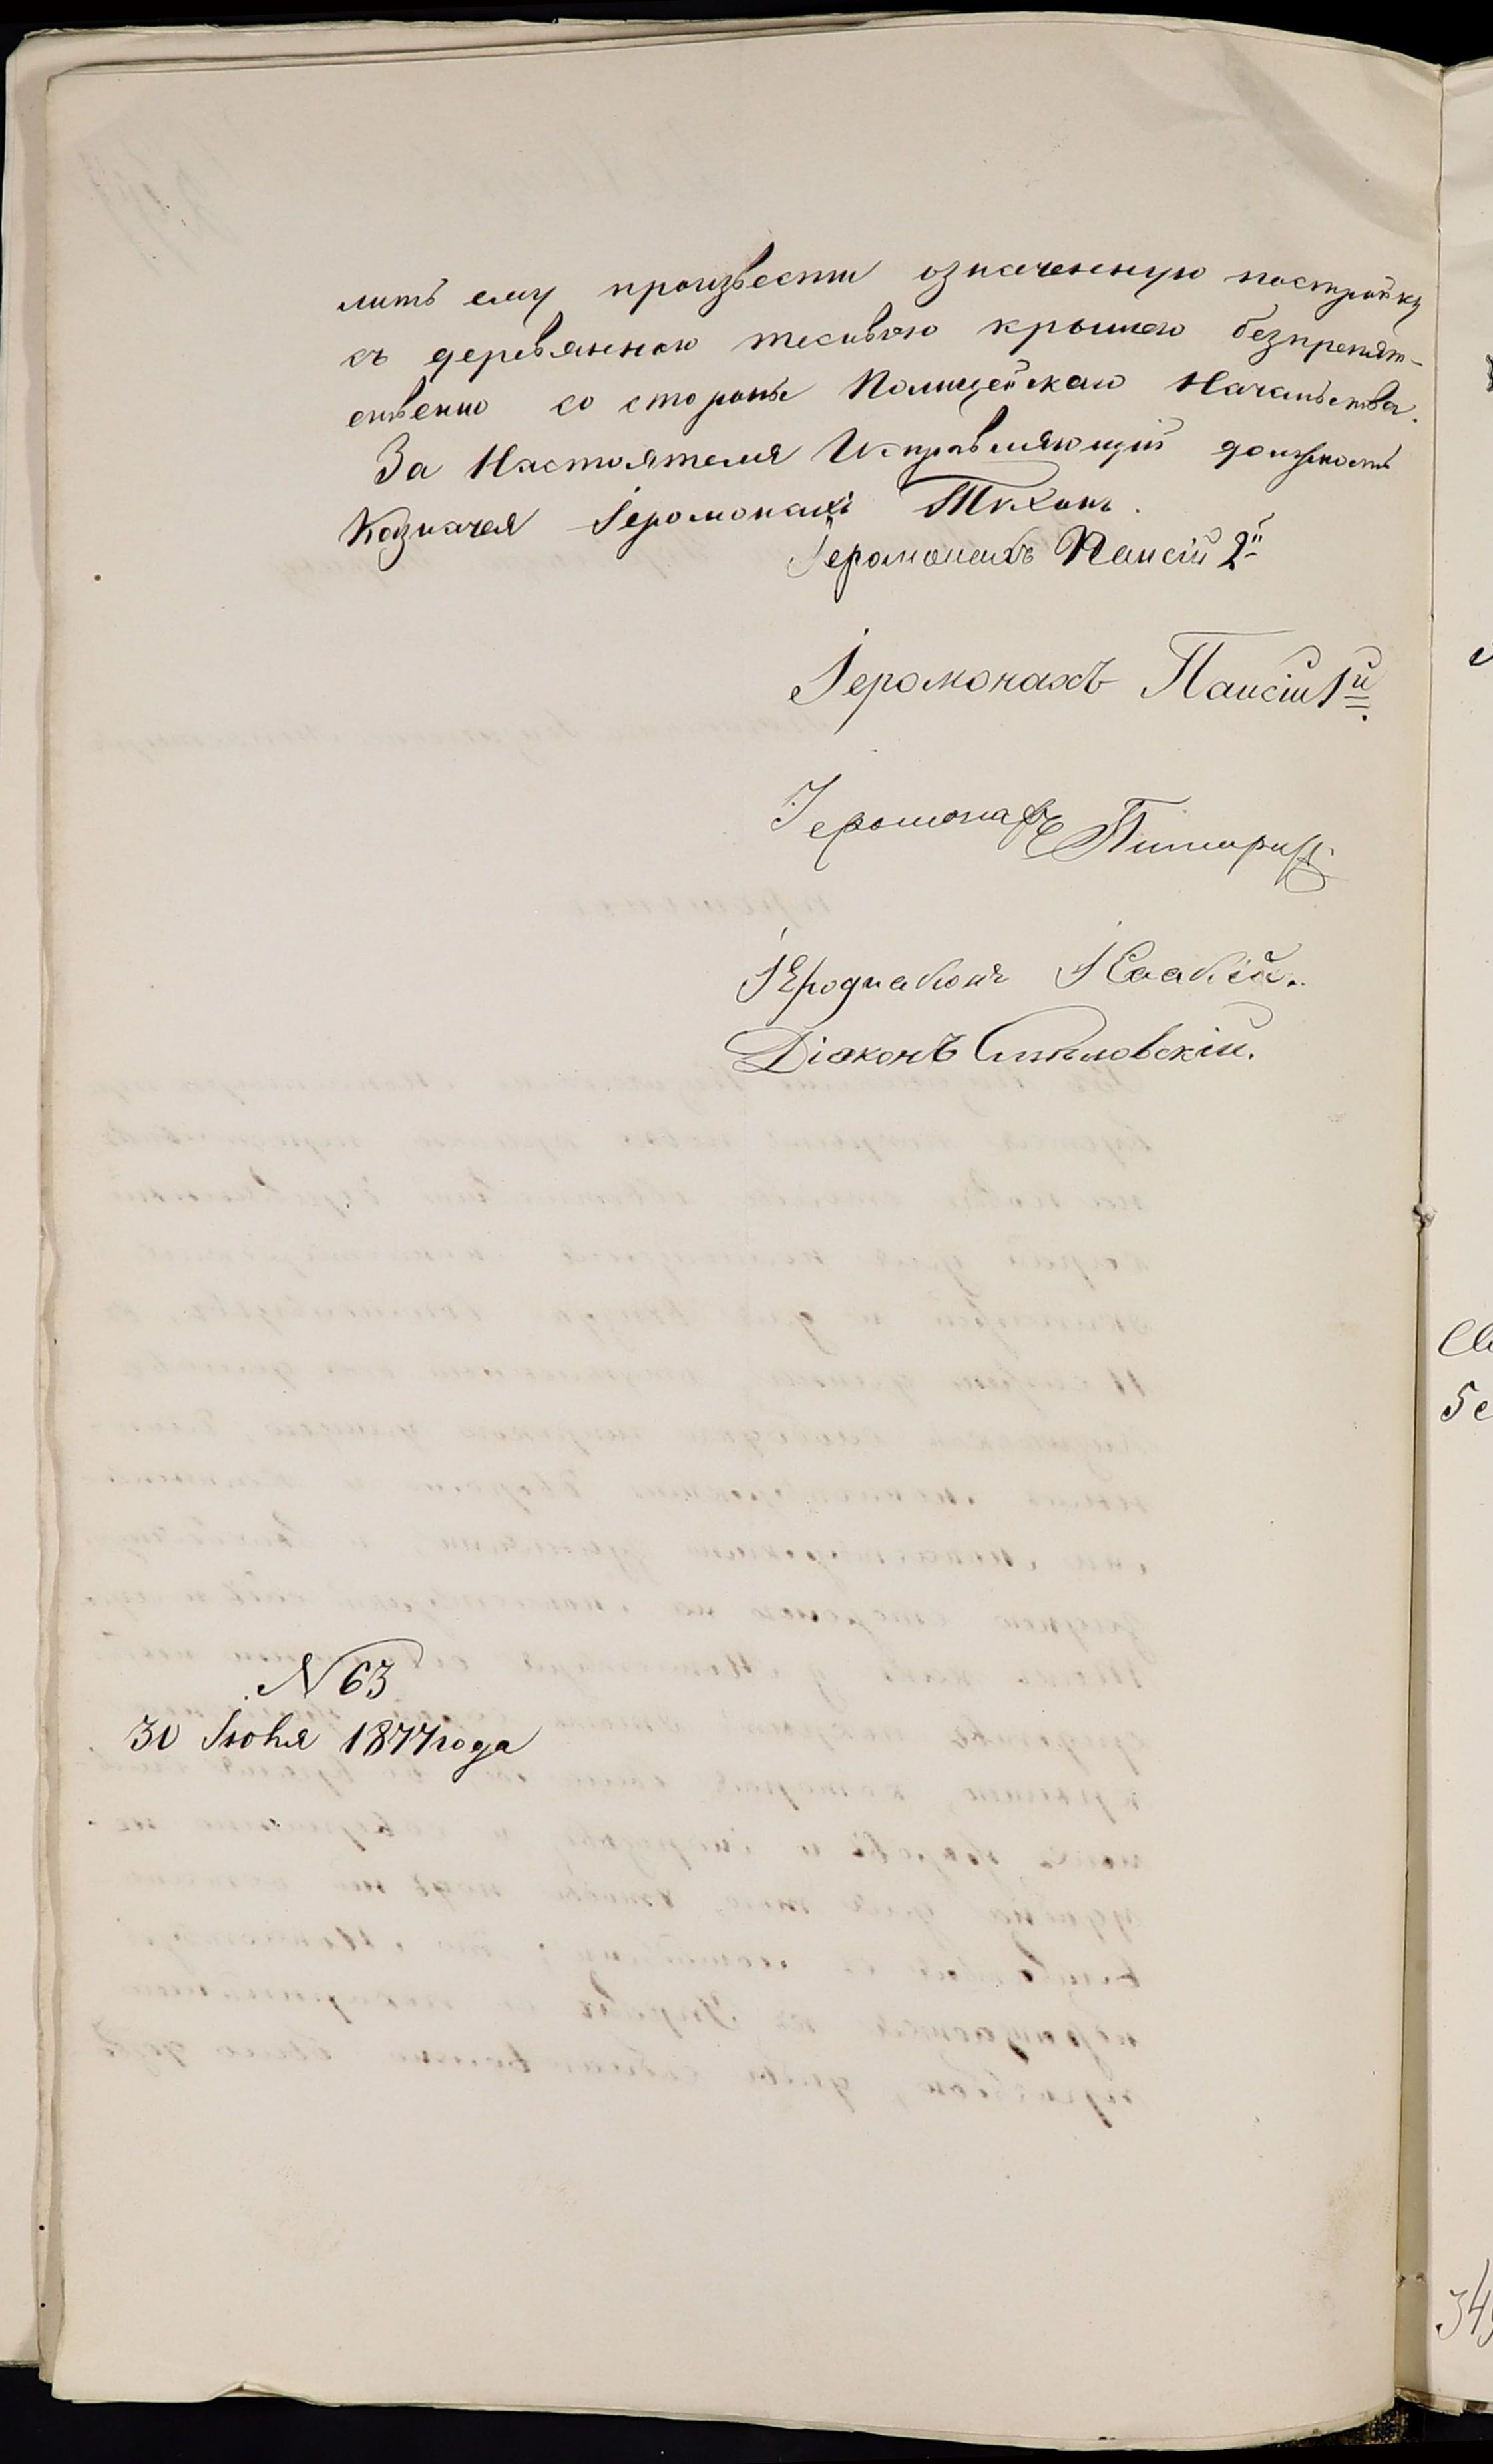 лить ему произвести означенную постройку
съ деревянною тесовою крышею безпрепят-
ственно со стороны Полицейскаго Начальства.
За Настоятеля Исправляющій должность
Казначея Іеромонахъ Тихонъ.
Іеромонахъ Паисій 2й
Іеромонахъ Паисій 1й.
Іеромонахъ Питиримъ.
Іеродиаконъ Исаакій.
Діаконъ
N 63
30 Іюня 1877 года